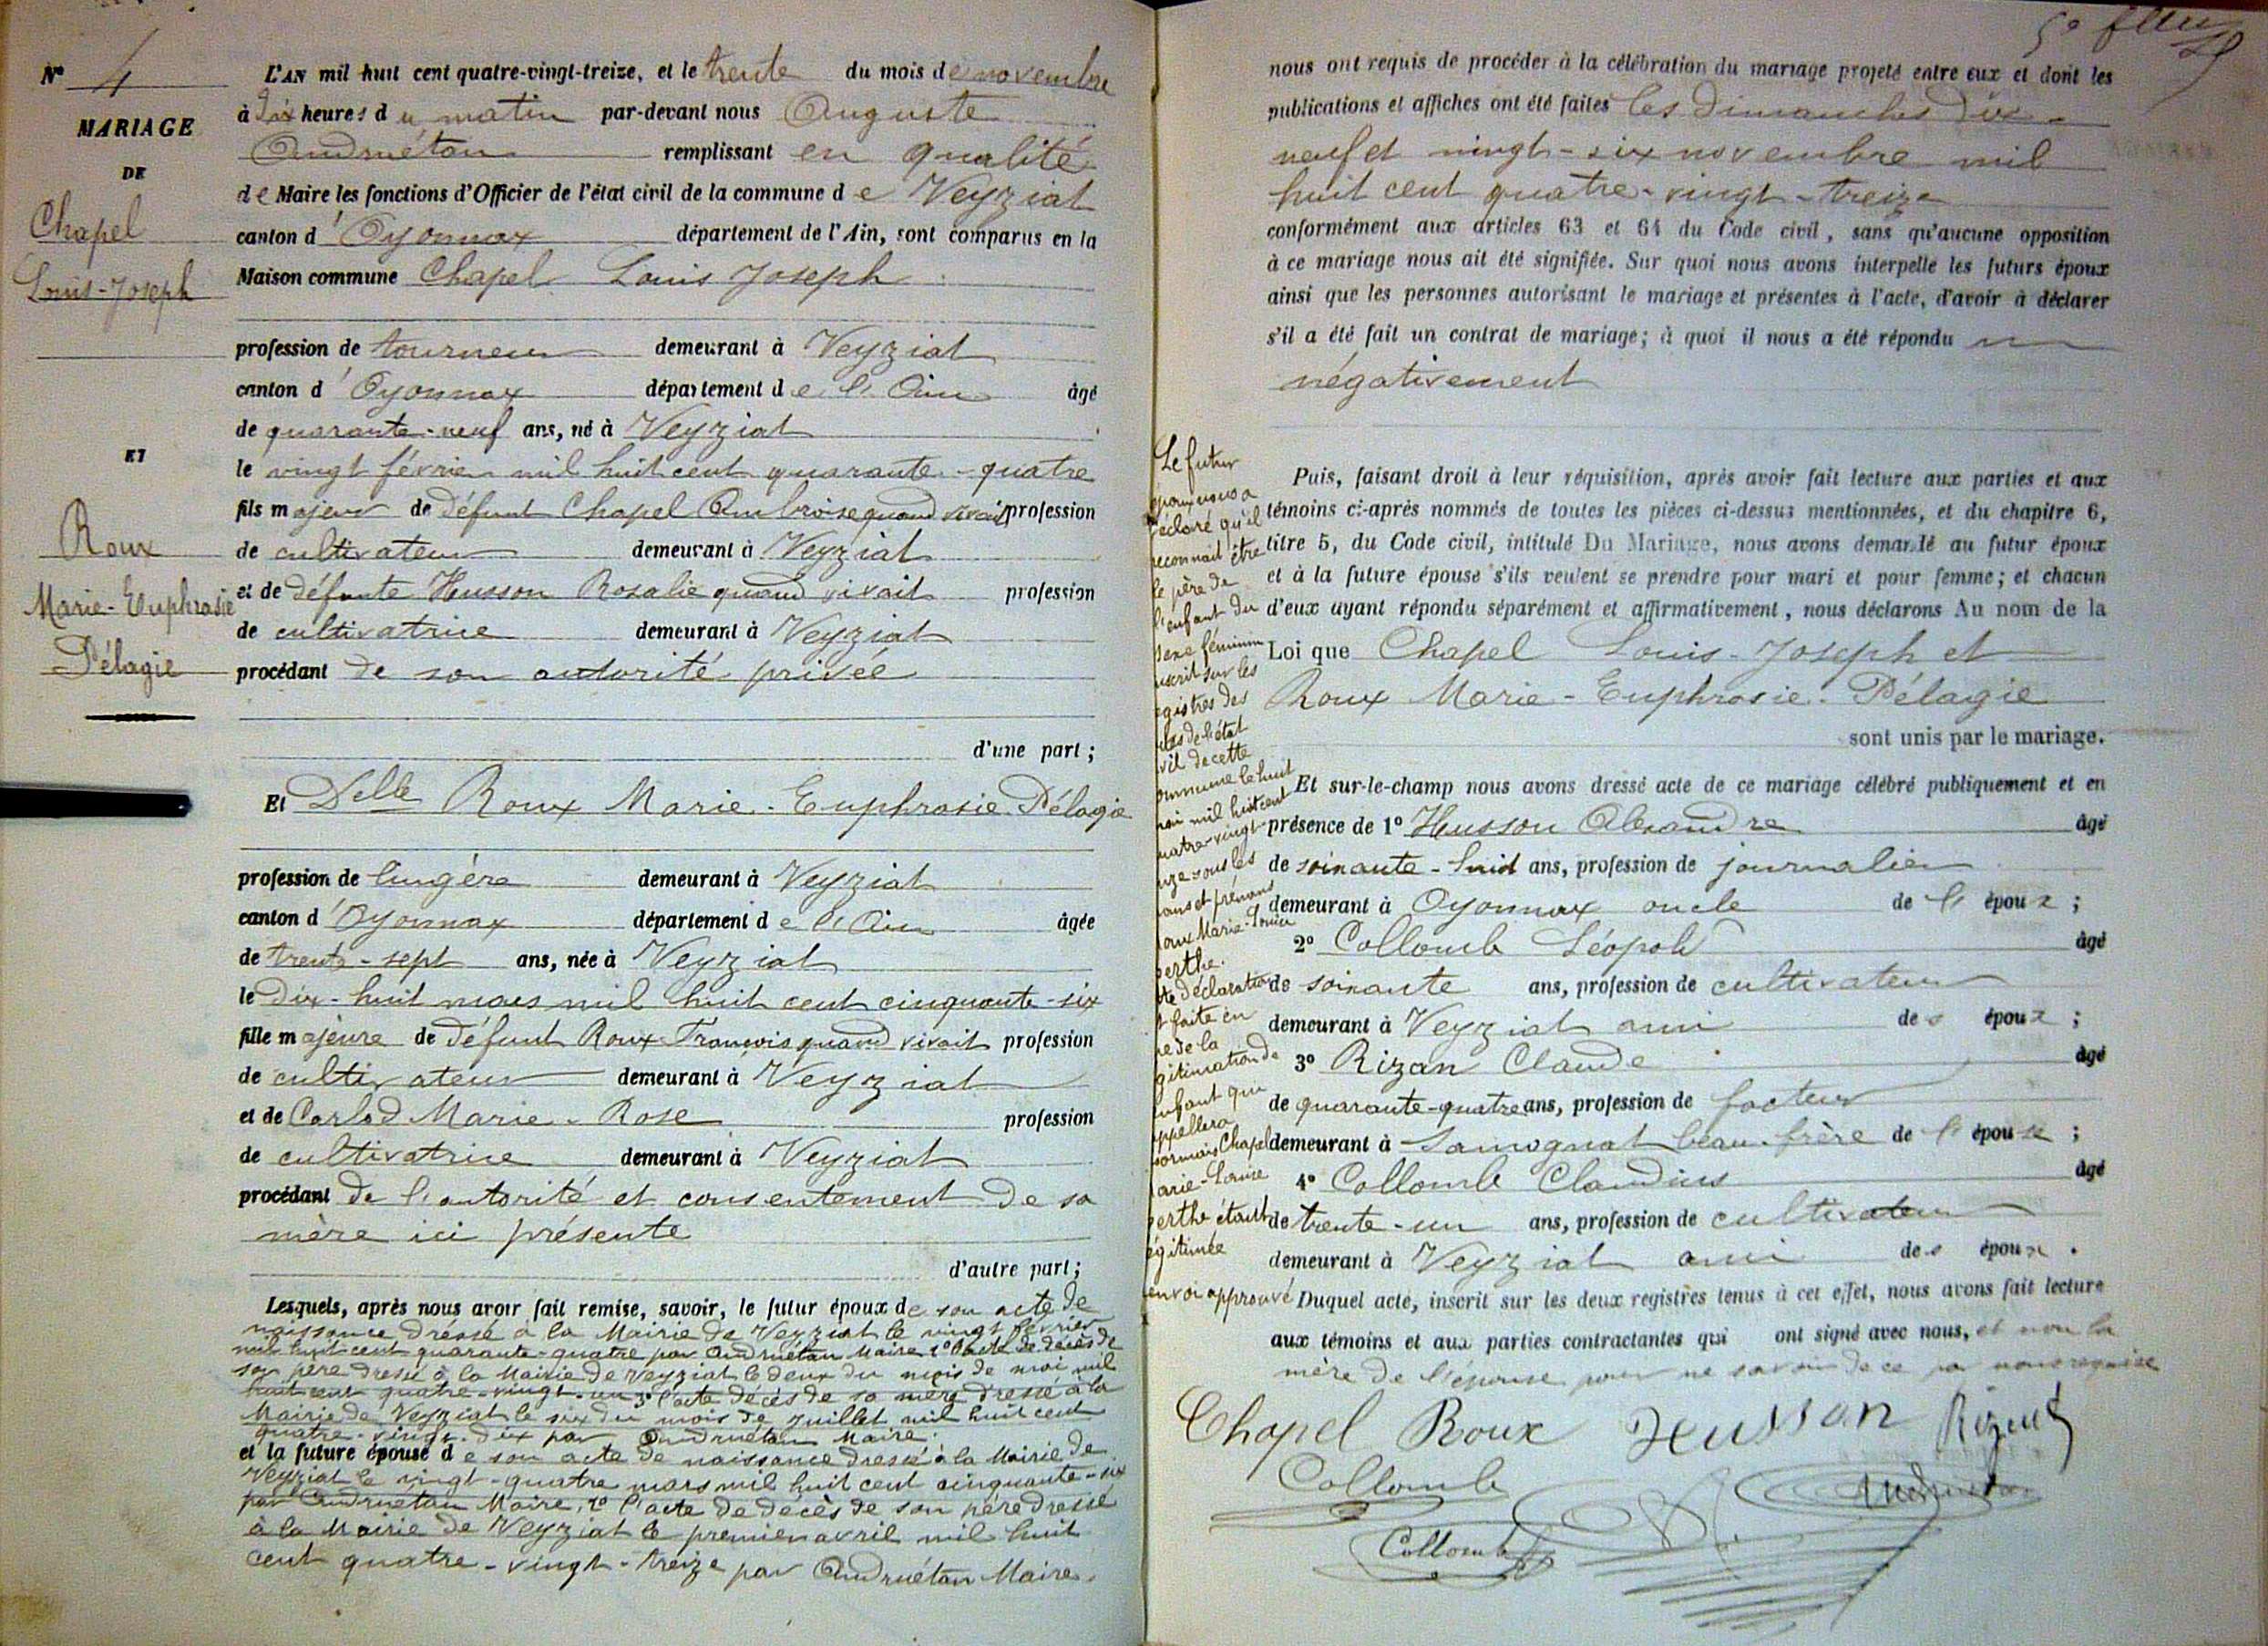 Nº 4
MARIAGE
DE
Chapel
Louis-Joseph
ET
Roux
Marie-Euphrasie
Pélagie
L'AN mil huit cent quatre-vingt-treize, et le trente du mois de novembre
à dix heures du matin par-devant nous Auguste
Andruétan remplissant en qualité
de Maire les fonctions d'Officier de l'état civil de la commune de Veyziat
canton d'Oyonnax département de l'Ain, sont comparus en la
Maison commune Chapel Louis Joseph
profession de tourneur demeurant à Veyziat
canton d'Oyonnax département de l'Ain âgé
de quarante-neuf ans, né à Veyziat
le vingt février mil huit cent quarante-quatre
fils majeur de défunt Chapel Ambroise quand vivait profession
de cultivateur demeurant à Veyziat
et de défunte Husson Rosalie quand vivait profession
de cultivatrice demeurant à Veyziat
procédant de son autorité privée
d'une part ;
Et Delle Roux Marie-Euphrasie Pélagie
profession de lingère demeurant à Veyziat
canton d'Oyonnax département de l'Ain âgée
de trente-sept ans, née à Veyziat
le dix-huit mars mil huit cent cinquante-six
fille majeure de défunt Roux François quand vivait profession
de cultivateur demeurant à Veyziat
et de Carlod Marie-Rose profession
de cultivatrice demeurant à Veyziat
procédant de l'autorité et consentement de sa
mère ici présente
d'autre part ;
Lesquels, après nous avoir fait remise, savoir, le futur époux de son acte de
naissance dressé à la Mairie de Veyziat le vingt février
mil huit cent quarante-quatre par Andruétan Maire 2º l'acte de décès de
son père dressé à la Mairie de Veyziat le deux du mois de mai mil
huit cent quatre-vingt-un 3º l'acte décès de sa mère dressé à la
Mairie de Veyziat le six du mois de juillet mil huit cent
quatre-vingt-dix par Andruétan Maire.
et la future épouse de son acte de naissance dressé à la Mairie de
Veyziat le vingt-quatre mars mil huit cent cinquante-six
par Andruétan Maire, 2º l'acte de décès de son père dressé
à la Mairie de Veyziat le premier avril mil huit
cent quatre-vingt-treize par Andruétan Maire.
nous ont requis de procéder à la célébration du mariage projeté entre eux et dont les
publications et affiches ont été faites les dimanches dix-
neuf et vingt-six novembre mil
huit cent quatre-vingt-treize
conformément aux articles 63 et 64 du Code civil, sans qu'aucune opposition
à ce mariage nous ait été signifiée. Sur quoi nous avons interpelle les futurs époux
ainsi que les personnes autorisant le mariage et présentes à l'acte, d'avoir à déclarer
s'il a été fait un contrat de mariage; à quoi il nous a été répondu
négativement
Le futur
époux nous a
déclaré qu'il
reconnait être
le père de
l'enfant du
sexe féminin
inscrit sur les
registres des
actes de l'état
civil de cette
commune le huit
mai mil huit cent
quatre-vingt-
onze sous les
noms et prénoms
Roux Marie-Louise
Berthe.
déclaration
faite en
de la
légitimation de
l'enfant qui
appellera
désormais Chapel
Marie-Louise
Berthe étant
légitimée
renvoi approuvé
Puis, faisant droit à leur réquisition, après avoir fait lecture aux parties et aux
témoins ci-après nommés de toutes les pièces ci-dessus mentionnées, et du chapitre 6,
titre 5, du Code civil, intitulé Du Mariage, nous avons demandé au futur époux
et à la future épouse s'ils veulent se prendre pour mari et pour femme; et chacun
d'eux ayant répondu séparément et affirmativement, nous déclarons Au nom de la
Loi que Chapel Louis-Joseph et
Roux Marie-Euphrasie-Pélagie
sont unis par le mariage.
Et sur-le-champ nous avons dressé acte de ce mariage célébré publiquement et en
présence de 1º Husson Alexandre âgé
de soixante-huit ans, profession de journalier
demeurant à Oyonnax oncle de l'époux ;
2º Collomb Léopold âgé
de soixante ans, profession de cultivateur
demeurant à Veyziat ami des époux ;
3º Rizan Claude âgé
de quarante-quatre ans, profession de facteur
demeurant à Samognat beau-frère de l'épouse ;
4º Collomb Claudius âgé
de trente-un ans, profession de cultivateur
demeurant à Veyziat ami des époux .
Duquel acte, inscrit sur les deux registres tenus à cet effet, nous avons fait lecture
aux témoins et aux parties contractantes qui ont signé avec nous, et non la
mère de l'épouse pour ne savoir de ce par nous requise
Chapel Roux Husson
Collomb
Collomb